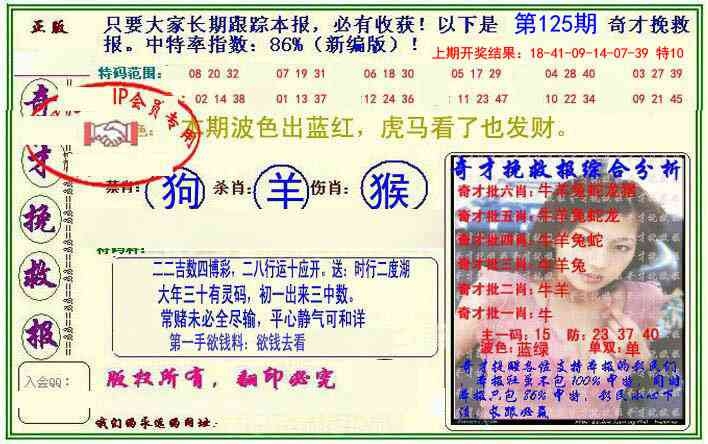 正版
只要大家长期跟踪本报，必有收获！以下是 第125期 奇才挽救
报。中特率指数：86%（新编版）！
上期开奖结果：18-41-09-14-07-39 特10
特码范围： 08 20 32 07 19 31 06 18 30 05 17 29 04 28 40 03 27 39
02 14 38 01 13 37 12 24 36 11 23 47 10 22 34 09 21 45
IP会员专用
本期波色出蓝红，虎马看了也发财。
奇才挽救报
禁肖：狗 杀肖：羊 伤肖：猴
二二吉数四博彩，二八行运十应开。送：时行二度湖
大年三十有灵码，初一出来三中数。
常赌未必全尽输，平心静气可和洋
第一手欲钱料：欲钱去看
版权所有，翻印必究
入会QQ：
我们的永远的网址：
奇才挽救报综合分析
奇才批六肖：牛羊兔蛇龙猪
奇才批五肖：牛羊兔蛇龙
奇才批四肖：牛羊兔蛇
奇才批三肖：牛羊兔
奇才批二肖：牛羊
奇才批一肖：牛
主一码：15 防：23 37 40
波色：蓝绿 单双：单